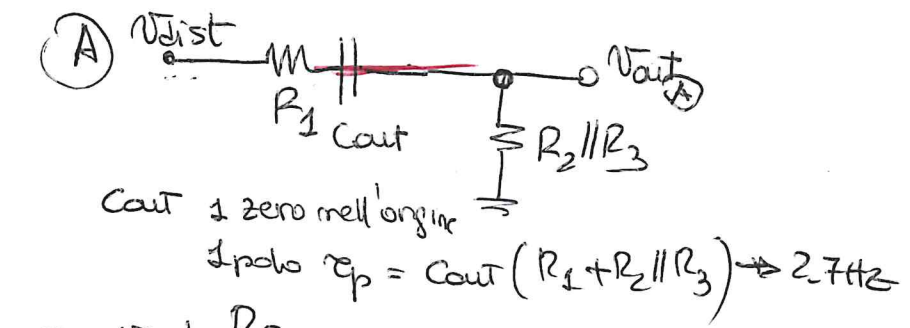 A Vdist
R1 Cout R2//R3 Vout A
Cout 1 zero nell'origine
1 polo τp = Cout (R1+R2//R3) → 2.7Hz